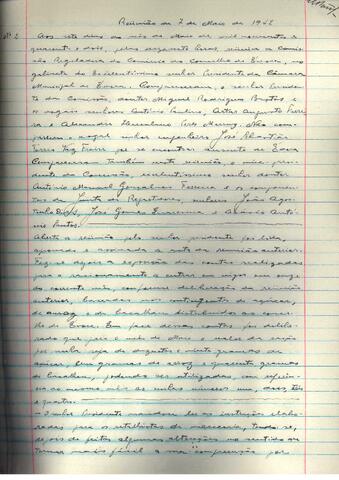 Reunião de 7 de Maio de 1942
Nº 2
Aos sete dias do mês de Maio de mil novecentos e
quarenta e dois, pelas dezassete horas, reuniu a Comis-
são Reguladora do Comércio do Concelho de Évora, no
gabinete do Excelentíssimo senhor Presidente da Câmara
Municipal de Évora. Compareceram, o senhor Presiden-
te da Comissão, doutor Miguel Rodrigues Bastos e
os vogais senhores António Paulino, Artur Augusto
e Alexandre Não com-
pareceu o vogal senhor engenheiro José Sebastião
Torres Vaz Freire por se encontrar ausente de Évora
Compareceram também nesta reunião, o vice-presi-
dente da Comissão, excelentíssimo senhor doutor
António Manuel Gonçalves Ferreira e os componen-
tes da Junta de Repartidores, senhores João Agos-
José Gomes e António
Aberta a reunião pelo senhor presidente foi lida,
aprovada e assinada a acta da reunião anterior.
Fez-se depois a exposição das contas realizadas
para o racionamento a entrar em vigor em
do corrente mês, conforme deliberação da reunião
anterior, baseadas nos contingentes de açúcar,
de arroz e de bacalhau distribuidos ao conce-
lho de Évora. Em face dessas contas foi delibe-
rado que para o mês de Maio o valor da senha
por senha seja de duzentos e vinte gramas de
açúcar, cem gramas de arroz e quarenta gramas
de bacalhau, podendo ser utilizadas com referên-
cia ao mesmo mês as senhas números um, dois, três
e quatro.
- O senhor Presidente mandou ler as instruções elabo-
radas para os retalhistas de mercearia, tendo-se,
depois de feitas algumas alterações no sentido de
tornar mais fácil a sua compreensão por